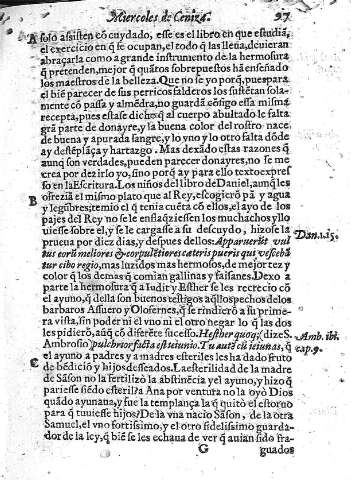 Miercoles de Ceniza. 97
A solo assisten cõ cuydado, esse es el libro en que estudiã,
el exercicio en q̃ se ocupan, el todo q̃ las lleua, deuieran
abraçarla como a grande instrumento de la hermosura
q̃ pretenden, mejor q̃ quãtos sobrepuestos hã enseñado
los maestros de la belleza. Que no se yo porq̃, pues para
el biẽ parecer de sus perricos falderos los sustẽtan sola-
mente cõ passa y almẽdra, no guardã cõsigo essa misma
recepta, pues estase dicho q̃ al cuerpo abultado le falta
grã parte de donayre, y la buena color del rostro nace
de buena y apurada sangre, y lo vno y lo otro falta dõde
ay destẽplãça y hartazgo. Mas dexãdo estas razones q̃
aunq̃ son verdades, pueden parecer donayres, no se me
crea por dezirlo yo, sino porq̃ ay para ello texto expres
so en la Escritura. Los niños del libro de Daniel, aunq̃ les
B ofrezia el mismo plato que al Rey, escogierõ pã y agua
y legũbres; temio el q̃ tenia cuẽta cõ ellos, el ayo de los
pajes del Rey no se le enflaq̃ziessen los muchachos y llo
uiesse sobre el, y se le cargasse a su descuydo, hizose la
prueua por diez dias, y despues dellos: Apparuerũt vul Dan. 1. 15.
tus eorũ meliores & corpulẽtiores cæteris pueris qui vescebã
tur cibo regio, mas luzidos mas hermosos, de mejor tez y
color q̃ los demas q̃ comian gallinas y faisanes. Dexo a
parte la hermosura q̃ a Iudit y Esther se les recrecio cõ
el ayuno, q̃ della son buenos testigos aq̃llos pechos de los
barbaros Assuero y Olofernes, q̃ se rindierõ a su prime-
ra vista, sin poder ni el vno ni el otro negar lo q̃ las dos
les pidierõ, aũq̃ cõ diferẽte sucesso. Hesther quoq; (dize S.
Ambrosio) pulchrior facta est ieiunio. Tu autẽ cũ ieiunas, q̃ Amb. ibi.
el ayuno a padres y a madres esteriles les ha dado fruto cap. 9.
C de bẽdiciõ y hijos desseados. La esterilidad de la madre
de Sãson no la fertilizò la abstinẽcia y el ayuno, y hizo q̃
pariesse siẽdo esteril? A Ana por ventura no la oyò Dios
quãdo ayunaua, y fue la templança la q̃ quitò el estoruo
para q̃ tuuiesse hijos? De la vna nacio Sãson, de la otra
Samuel, el vno fortissimo, y el otro fidelissimo guarda-
dor de la ley, q̃ biẽ se les echaua de ver q̃ auian sido fra-
G guados